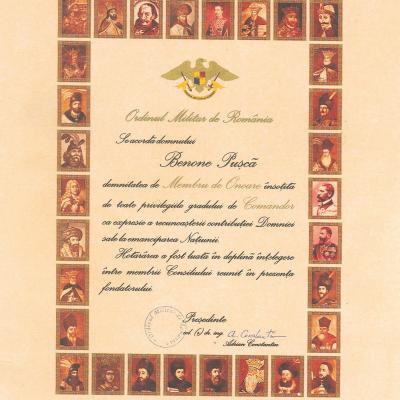 Ordinul Militar de România
Se acordă domnului
Benone Pușcă
demnitatea de Membru de Onoare însoțită
de toate privilegiile gradului de Comandor
ca expresie a recunoașterii contribuției Domniei
sale la emanciparea Națiunii.
Hotărârea a fost luată în deplină înțelegere
între membrii Consiliului reunit în prezența
fondatorului.
Președinte
col. (r) dr. ing. A. Constantin
Adrian Constantin